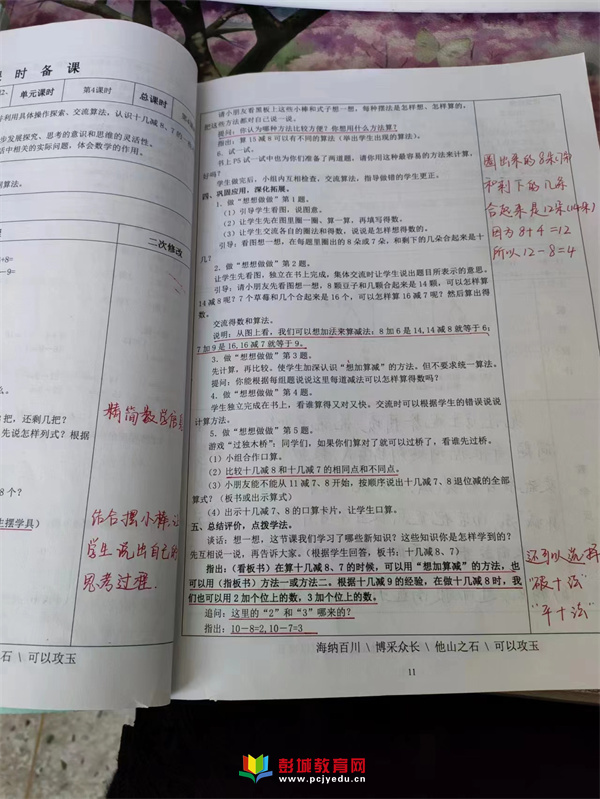 时备课
单元课时
第4课时
总课时
并利用具体操作探索、交流算法，认识十几减8、7的
步发展探究、思考的意识和思维的灵活性。
活中相关的实际问题，体会数学的作用。
算法。
二次修改
+8=
-9=
精简数学信息
把，还剩几把？
先说怎样列式？根据
8个？
生摆学具）
结合摆小棒，让
学生说出自己的
思考过程.
石\可以攻玉
请小朋友看黑板上这些小棒和式子想一想，每种摆法是怎样想、怎样算的，
把这些方法都对自己说一说。
提问：你认为哪种方法比较方便？你想用什么方法算？
指出：算15减8可以有不同的算法（举出学生出现的算法）。
6．试一试。
书上P5试一试中也为你们准备了两道题，请你用这种最容易的方法来计算，
好吗？
学生做完后，小组内互相检查，交流算法，指导做错的学生更正。
四、巩固应用，深化拓展。
1．做“想想做做”第1题。
（1）引导学生看图，说图意。
（2）让学生先在图里圈一圈、算一算，再填写得数。
（3）让学生交流各自的圈法和得数，说说是怎样想得数的。
引导：看图想一想，在每题里圈出的8朵或7朵，和剩下的几朵合起来是十
几？
2．做“想想做做”第2题。
让学生先看图，独立在书上完成，集体交流时让学生说出题目所表示的意思。
引导：请小朋友先看图想一想，8颗豆子和几颗合起来是14颗，可以怎样算
14减8呢？7个草莓和几个合起来是16个，可以怎样算16减7呢？然后算出得
数。
交流得数和算法。
说明：从图上看，我们可以想加法来算减法：8加6是14,14减8就等于6；
7加9是16,16减7就等于9。
3．做“想想做做”第3题。
先计算，再比较，使学生加深认识“想加算减”的方法，但不要求统一算法。
提问：你能根据每组题说说这里每道减法可以怎样算得数吗？
4．做“想想做做”第4题。
学生独立完成在书上，看谁算得又对又快。交流时可以根据学生的错误说说
计算方法。
5．做“想想做做”第5题。
游戏“过独木桥”：同学们，如果你们算对了就可以过桥了，看谁先过桥。
（1）小组合作口算。
（2）比较十几减8和十几减7的相同点和不同点。
（3）小朋友能不能从11减7、8开始，按顺序说出十几减7、8退位减的全部
算式？（板书或出示算式）
（4）出示十几减7、8的口算卡片，让学生口算。
五、总结评价，点拨学法。
谈话：想一想，这节课我们学习了哪些新知识？这些知识你是怎样学到的？
先互相说一说，再告诉大家。（根据学生回答，板书：十几减8、7）
指出：（看板书）在算十几减8、7的时候，可以用“想加算减”的方法，也
可以用（指板书）方法一或方法二。根据十几减9的经验，在做十几减8时，我
们也可以用2加个位上的数，3加个位上的数。
追问：这里的“2”和“3”哪来的？
指出：10－8=2,10－7=3
圈出来的8朵(7朵)
和剩下的几朵
合起来是12朵(14朵)
因为8+4=12
所以12-8=4
还可以选择
“破十法”
“平十法”
海纳百川\博采众长\他山之石\可以攻玉
11
彭城教育网
www.pcjyedu.cn